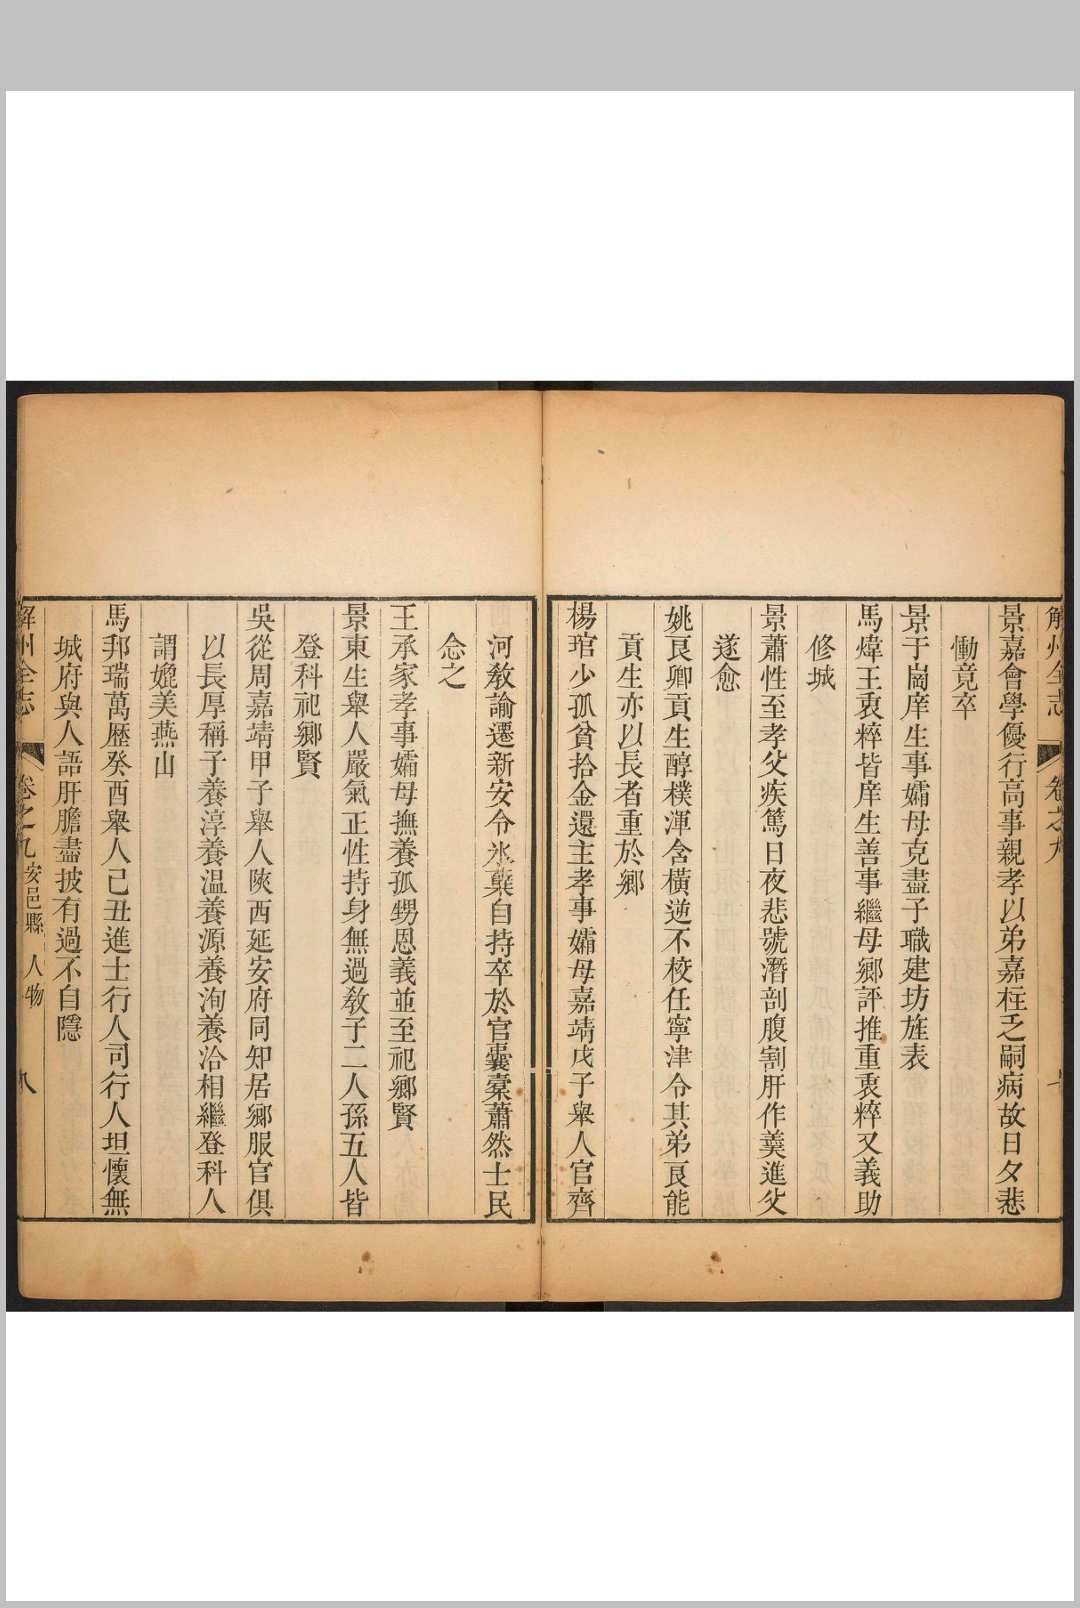 解州全志 卷之九
景嘉會學優行高事親孝以弟嘉枉乏嗣病故日夕悲
慟竟卒
景于崗庠生事孀母克盡子職建坊旌表
馬煒王衷粹皆庠生善事繼母鄉評推重衷粹又義助
修城
景蕭性至孝父疾篤日夜悲號潛剖腹割肝作羹進父
遂愈
姚良卿貢生醇樸渾含橫逆不校任寧津令其弟良能
貢生亦以長者重於鄉
楊琯少孤貧拾金還主孝事孀母嘉靖戊子舉人官齊
河敎諭遷新安令氷蘗自持卒於官囊橐蕭然士民
念之
王承家孝事孀母撫養孤甥恩義並至祀鄉賢
景東生舉人嚴氣正性持身無過敎子二人孫五人皆
登科祀鄉賢
吳從周嘉靖甲子舉人陝西延安府同知居鄉服官俱
以長厚稱子養淳養溫養源養洵養洽相繼登科人
謂媲美燕山
馬邦瑞萬歷癸酉舉人己丑進士行人司行人坦懷無
城府與人語肝膽盡披有過不自隱
解州全志 卷之九 安邑縣 人物 八